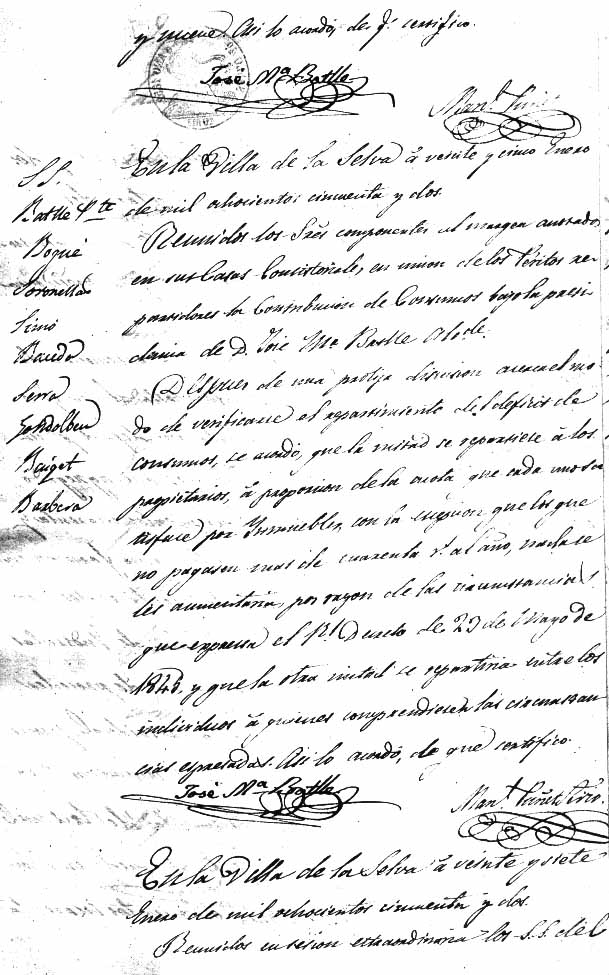 y nueve. Asi lo acordó, de q.e certifico.
José M.a Batlle
Man.l
En la Villa de la Selva á veinte y cinco Enero
de mil ochocientos cincuenta y dos.
S.S.
Batlle P.te
Bogué
Simó
Serra
Baiget
Barbera
Reunidos los Sres componentes al margen anotados
en sus Casas Consistoriales, en union de los Peritos re
partidores la Contribucion de Consumos bajo la presi
dencia de D. José M.a Batlle Alc.de
Despues de una prolija discusion acerca el mo
do de verificarse el repartimiento del deficit de
consumos, se acordó, que la mitad se repartiese á los
propietarios, á proporcion de la cuota que cada uno sa
tisface por Inmuebles, con la que los que
no pagasen mas de cuarenta r.s al año, nada se
les aumentaria, por razon de las circumstancias
que expressa el R.l Decreto de 23 de Mayo de
1845. y que la otra mitad se repartiria entre los
individuos á quienes comprendiesen las circunstan
cias espresadas. Asi lo acordó, de que certifico.
José M.a Batlle
Man.l
En la Villa de la Selva á veinte y siete
Enero de mil ochocientos cincuenta y dos.
Reunidos en sesion extraordinaria los S.S. del